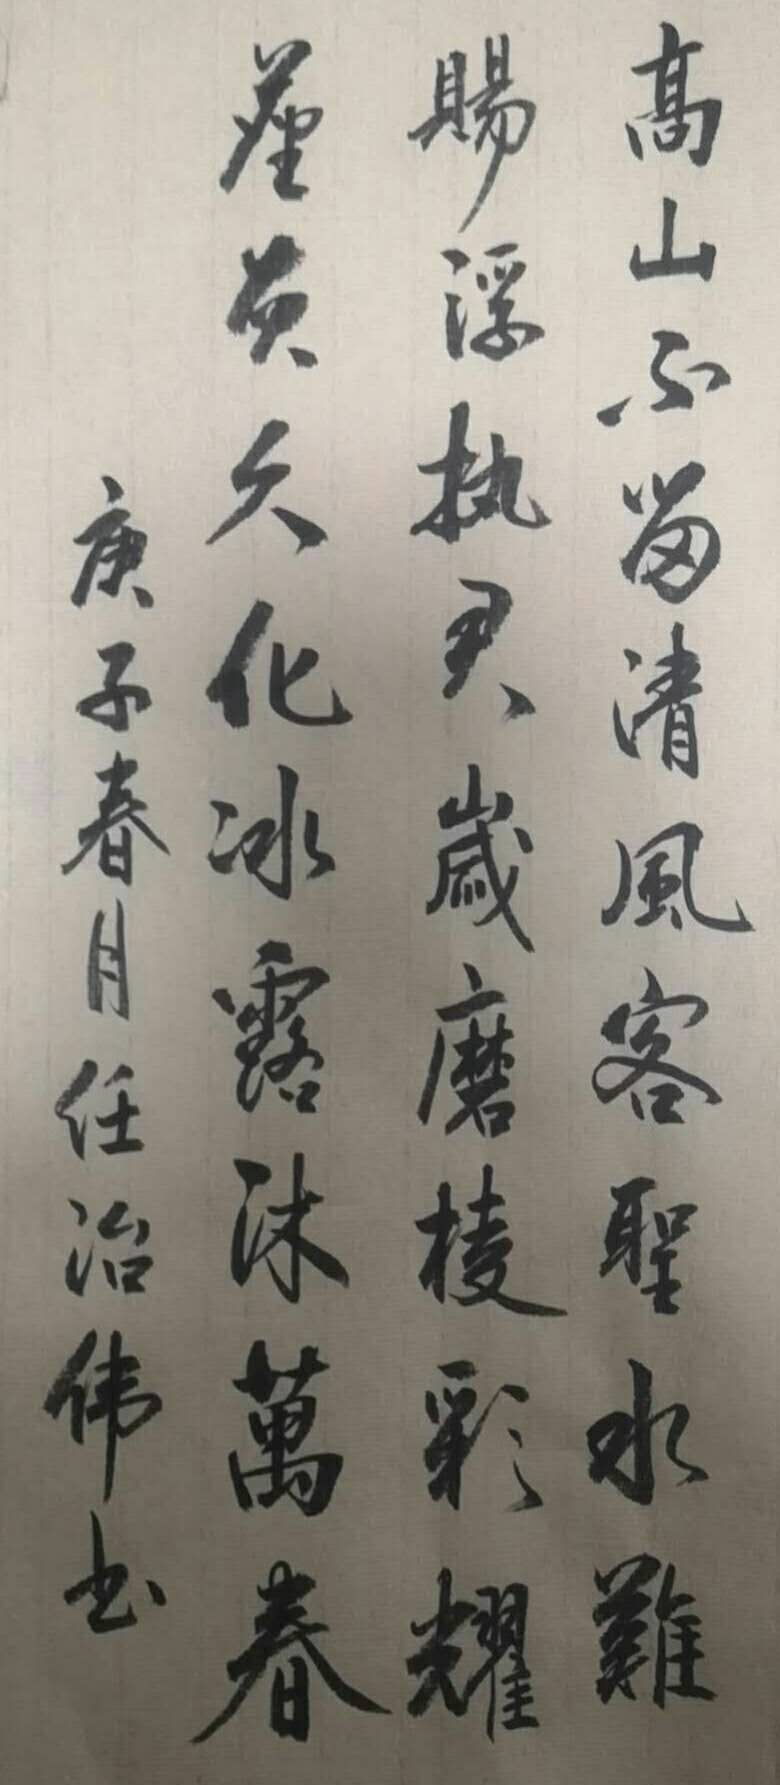 髙山不留清風客聖水難
賜浮執歲磨棱彩耀
久化冰露沐萬春
庚子春月任治伟书